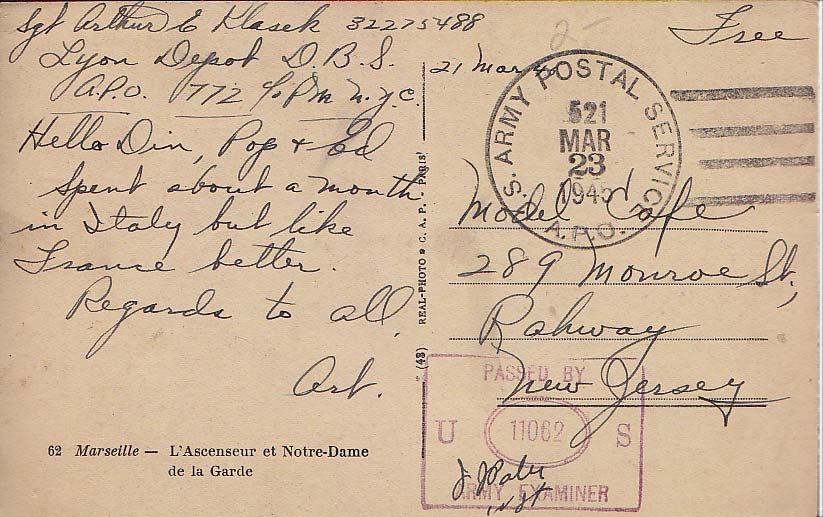 Sgt Arthur E Klasek 32275488
Lyon Depot D.B.S.
A.P.O. 772 c/o P.M. N.Y.C.
Hello Din, Pop + Ed
Spent about a month
in Italy but like
France better.
Regards to all.
Art.
62 Marseille — L'Ascenseur et Notre-Dame
de la Garde
(43) REAL-PHOTO C. A. P. PARIS
2-
Free
21 Mar 45
U.S. ARMY POSTAL SERVICE
521
MAR
23
1945
A.P.O.
Model Cafe
289 Monroe St,
Rahway
New Jersey
PASSED BY
U 11062 S
ARMY EXAMINER